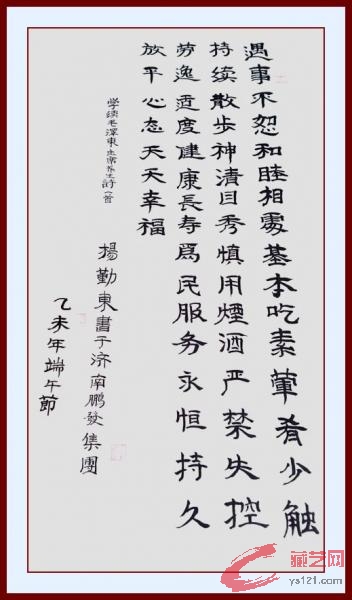 遇事不恕和睦相處基本吃素葷肴少触
持续散步神清目秀慎用煙酒严禁失控
劳逸适度健康長寿爲民服务永恒持久
放平心态天天幸福
学续毛澤東主席养生詩一首
揚勤東書于济南鹏发集團
乙未年端午節
藏艺网
ys121.com